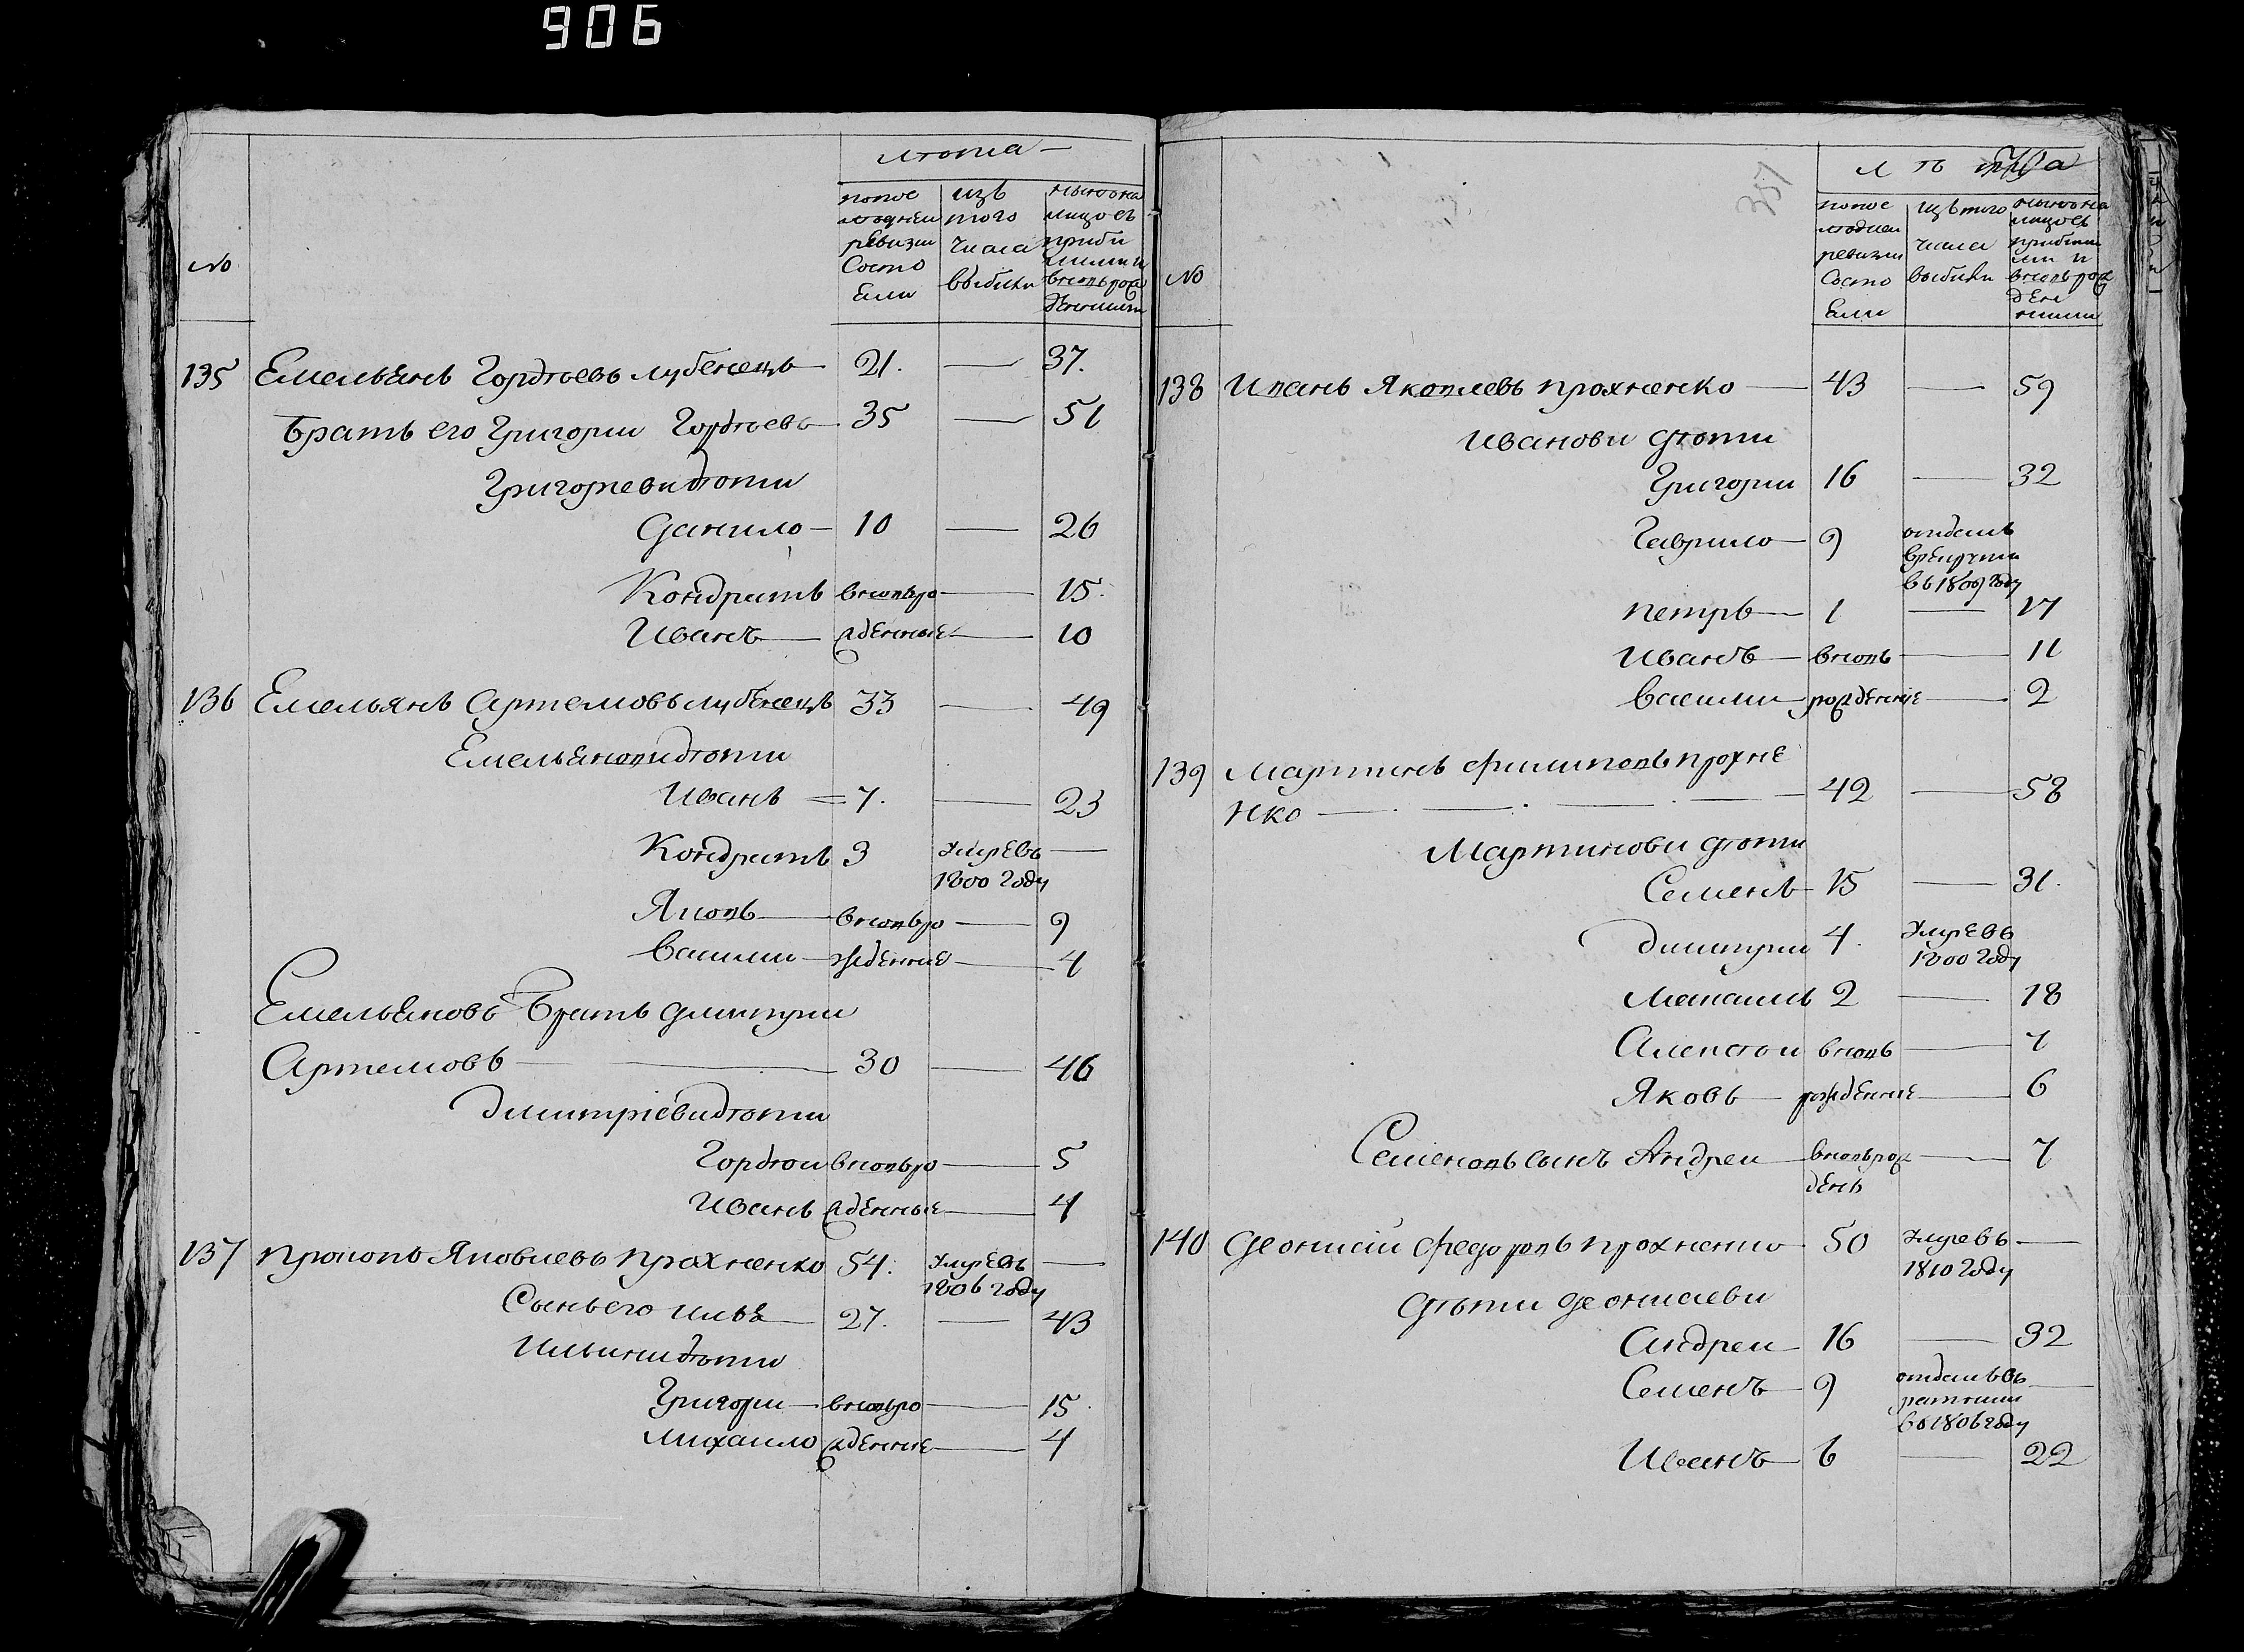 906
лѣта
№
попос
лѣдней
ревизии
Состо
яли
изъ
того
числа
выбыли
ныне на
лицо съ
прибы
лыми и
вновь рож
денными
135 Емельянъ Гордѣевъ лубенецъ 21. — 37.
братъ его Григории Гордѣевъ 35 — 51
Григориеви дѣти
Данило 10 — 26
Кондратъ вновь ро — 15
Иванъ жденные — 10
136 Емельянъ Артемовъ лубенецъ 33 — 49
Емельянови дѣти
Иванъ 7. — 23
Кондратъ 3 Умревъ —
1800 году
Яковъ вновь ро — 9
Василии жденные — 4
Емельяновъ братъ Дмитрии
Артемовъ — 30 — 46
Дмитриеви дѣти
Гордѣи вновь ро — 5
Иванъ жденные — 4
137 Прокопъ Яковлевъ Прохненко 54. Умревъ —
1806 году
Сынъ его илья 27. — 43
Ильини дѣти
Григори вновь ро — 15
Михаило жденные — 4
357
лѣта
№
попос
лѣдней
ревизии
Состо
яли
изъ того
числа
выбыли
ныне на
лицо съ
прибыл
ми и
вновь рож
ден
ными
138 Иванъ Яковлевъ прохненко — 43 — 59
Иванови дѣти
Григории 16 — 32
Гаврило 9 отданъ
врекруты
въ 1809 году
петръ 1 — 17
Иванъ вновь — 11
василии рожденные — 2
139 Мартинъ филиповъ прохне
нко — 42 — 58
Мартинови дѣти
Семенъ 15 — 31.
Димитрии 4. Умревъ
1800 году
2 — 18
Алексѣи вновь — 7
Яковъ рожденные — 6
Семеновъ сынъ Андреи вновь рож — 7
денъ
140 Деонисии Федоровъ прохненко 50 Умревъ —
1810 году
Дѣти Деонисиеви
Андреи 16 — 32
Семенъ 9 отданъ въ —
ратники
въ 1806 году
Иванъ 6 — 22